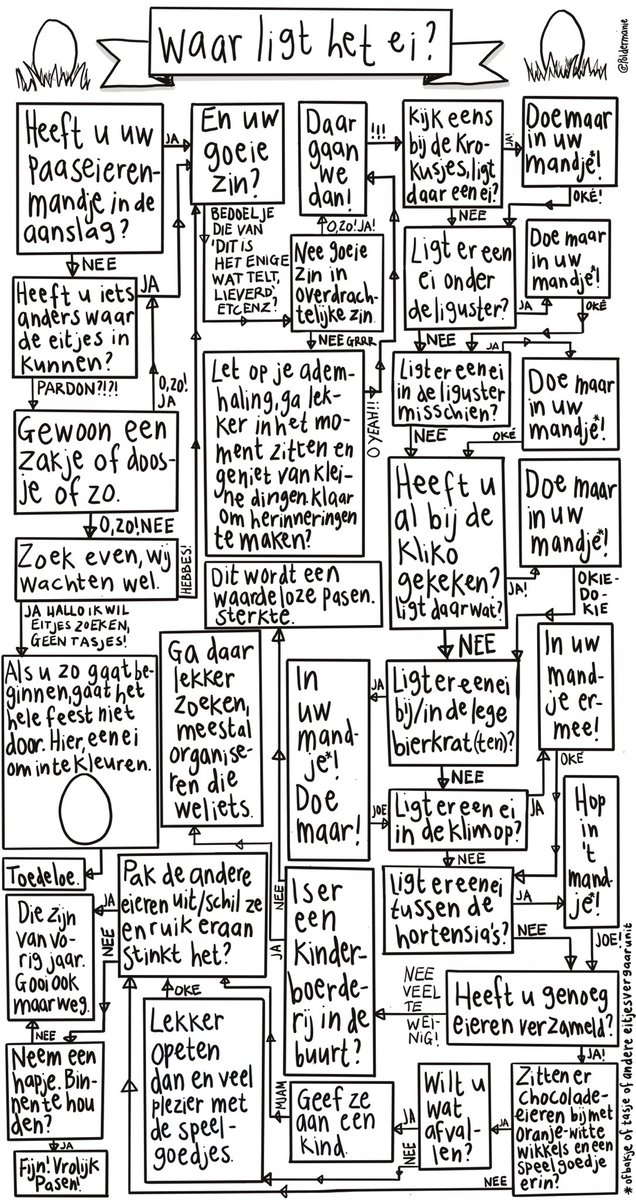 Waar ligt het ei?
@Poldermanie
Heeft u uw
Paaseieren-
mandje in de
aanslag?
JA
NEE
En uw
goeie
zin?
BEDOEL JE
DIE VAN
'DIT IS
HET ENIGE
WAT TELT,
LIEVERD'
ETCENZ?
Daar
gaan
we
dan!
!!!
O,ZO!JA!
Kijk eens
bij de Kro-
kusjes, ligt
daar een ei?
JA!
NEE
Doe maar
in uw
mandje*!
OKÉ!
Heeft u iets
anders waar
de eitjes in
kunnen?
JA
PARDON?!?!
Nee goeie
zin in
overdrach-
telijke zin.
NEE GRRR
Ligt er een
ei onder
de liguster?
JA
NEE
Doe maar
in uw
mandje*!
OKÉ
Gewoon een
zakje of doos-
je of zo.
O,ZO!
JA
O,ZO!NEE
Let op je adem-
haling, ga lek-
ker in het mo-
ment zitten en
geniet van klei-
ne dingen klaar
om herinneringen
te maken?
O YEAH!!
Ligt er een ei
in de liguster
misschien?
JA
NEE
Doe maar
in uw
mandje*!
OKÉ
Zoek even, wij
wachten wel.
HEBBES!
JA HALLO IK WIL
EITJES ZOEKEN,
GEEN TASJES!
Dit wordt een
waardeloze pasen.
sterkte.
Heeft u
al bij de
Kliko
gekeken?
ligt daar wat?
JA!
NEE
Doe maar
in uw
mandje*!
OKIE-
DO-
KIE
Als u zo gaat be-
ginnen, gaat het
hele feest niet
door. Hier, een ei
om in te kleuren.
Toedeloe.
Ga daar
lekker
zoeken,
meestal
organise-
ren die
wel iets.
In
uw
mand-
je*!
Doe
maar!
JOE
Ligt er een ei
bij/in de lege
bierkrat(ten)?
JA
NEE
In uw
mand-
je er-
mee!
OKÉ
Ligt er een ei
in de klimop?
JA
NEE
Hop
in
't
mand-
je*!
JOE!
Ligt er een ei
tussen de
hortensia's?
JA
NEE
Heeft u genoeg
eieren verzameld?
NEE
VEEL
TE
WEI-
NIG!
JA!
Is er
een
Kinder-
boerde-
rij in de
buurt?
NEE
JA
Pak de andere
eieren uit/schil ze
en ruik eraan
stinkt het?
JA
NEE
Die zijn
van vo-
rig jaar.
Gooi ook
maar weg.
Neem een
hapje. Bin-
nen te hou
den?
NEE
JA
Fijn! Vrolijk
Pasen!
Lekker
opeten
dan en veel
plezier met
de speel-
goedjes.
OKE
Geef ze
aan een
kind.
MJAM
Wilt u
wat
afval-
len?
JA
NEE
Zitten er
chocolade-
eieren bij met
oranje-witte
wikkels en een
speelgoedje
erin?
JA
NEE
*of bakje of tasje of andere eitjesvergaarunit